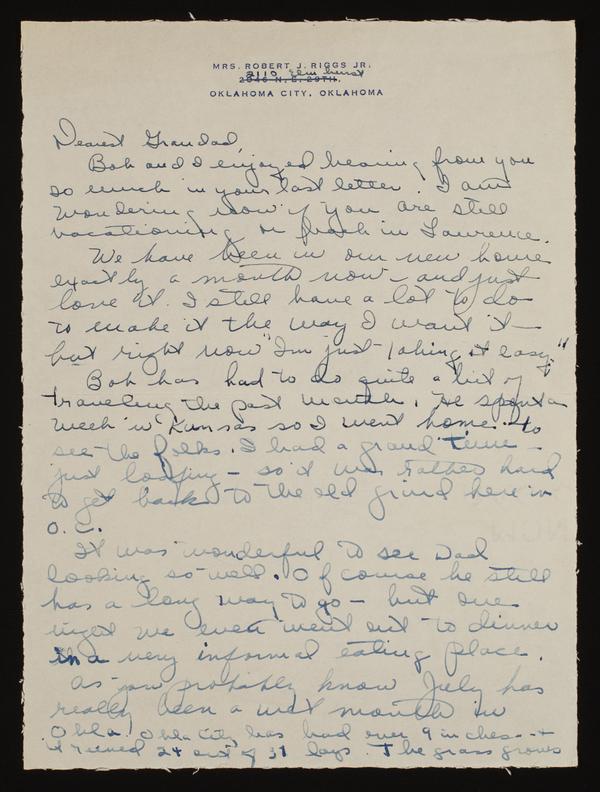 MRS. ROBERT J. RIGGS JR.
2110 Elmhurst
2646 N. E. 29TH.
OKLAHOMA CITY, OKLAHOMA
Dearest Grandad,
Bob and I enjoyed hearing from you
so much in your last letter. I am
wondering now if you are still
vacationing or back in Lawrence.
We have been in our new home
exactly a month now - and just
love it. I still have a lot to do
to make it the way I want it -
but right now "I'm just taking it easy."
Bob has had to do quite a bit of
traveling the past month. He spent a
week in Kansas so I went home to
see the folks. I had a grand time -
just loafing - so it was rather hard
to get back to the old grind here in
O. C.
It was wonderful to see Dad
looking so well. Of course he still
has a long way to go - but one
night we even went out to dinner
in a very informal eating place.
As you probably know July has
really been a wet month in
Okla. Okla City has had over 9 inches - +
it rained 24 out of 31 days. The grass grows